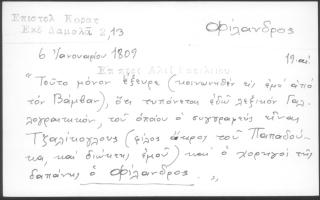 Επιστολ Κοραή
Εκδ Δαμαλά 2,13
Φίλανδρος
6 Ἰανουαρίου 1809
19 αἰ
"Τοῦτο μόνον ἔξευρε (κοινωνηθὲν εἰς ἐμὲ ἀπὸ
τὸν Βάμβαν), ὅτι τυπόνεται ἐδῶ λεξικὸν Γαλ-
λογραικικόν, τοῦ ὁποίου ὁ συγγραφεὺς εἶναι
Τζαλίκογλους (φίλος ἄκρος τοῦ Παπαδού-
κα, καὶ διώκτης ἐμοῦ) καὶ ὁ χορηγὸς τῆς
δαπάνης ὁ Φίλανδρος. "